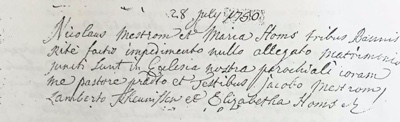 28 july 1766
Nicolaus Mestrom et Maria Homs tribus Bannis
rite factis impedimento nullo allegato matrimonio
juncti sunt in Ecclesia nostra parochiali coram
me pastore pdicto et Testibus jacobo Mestrom
Lamberto et Elizabetha Homs